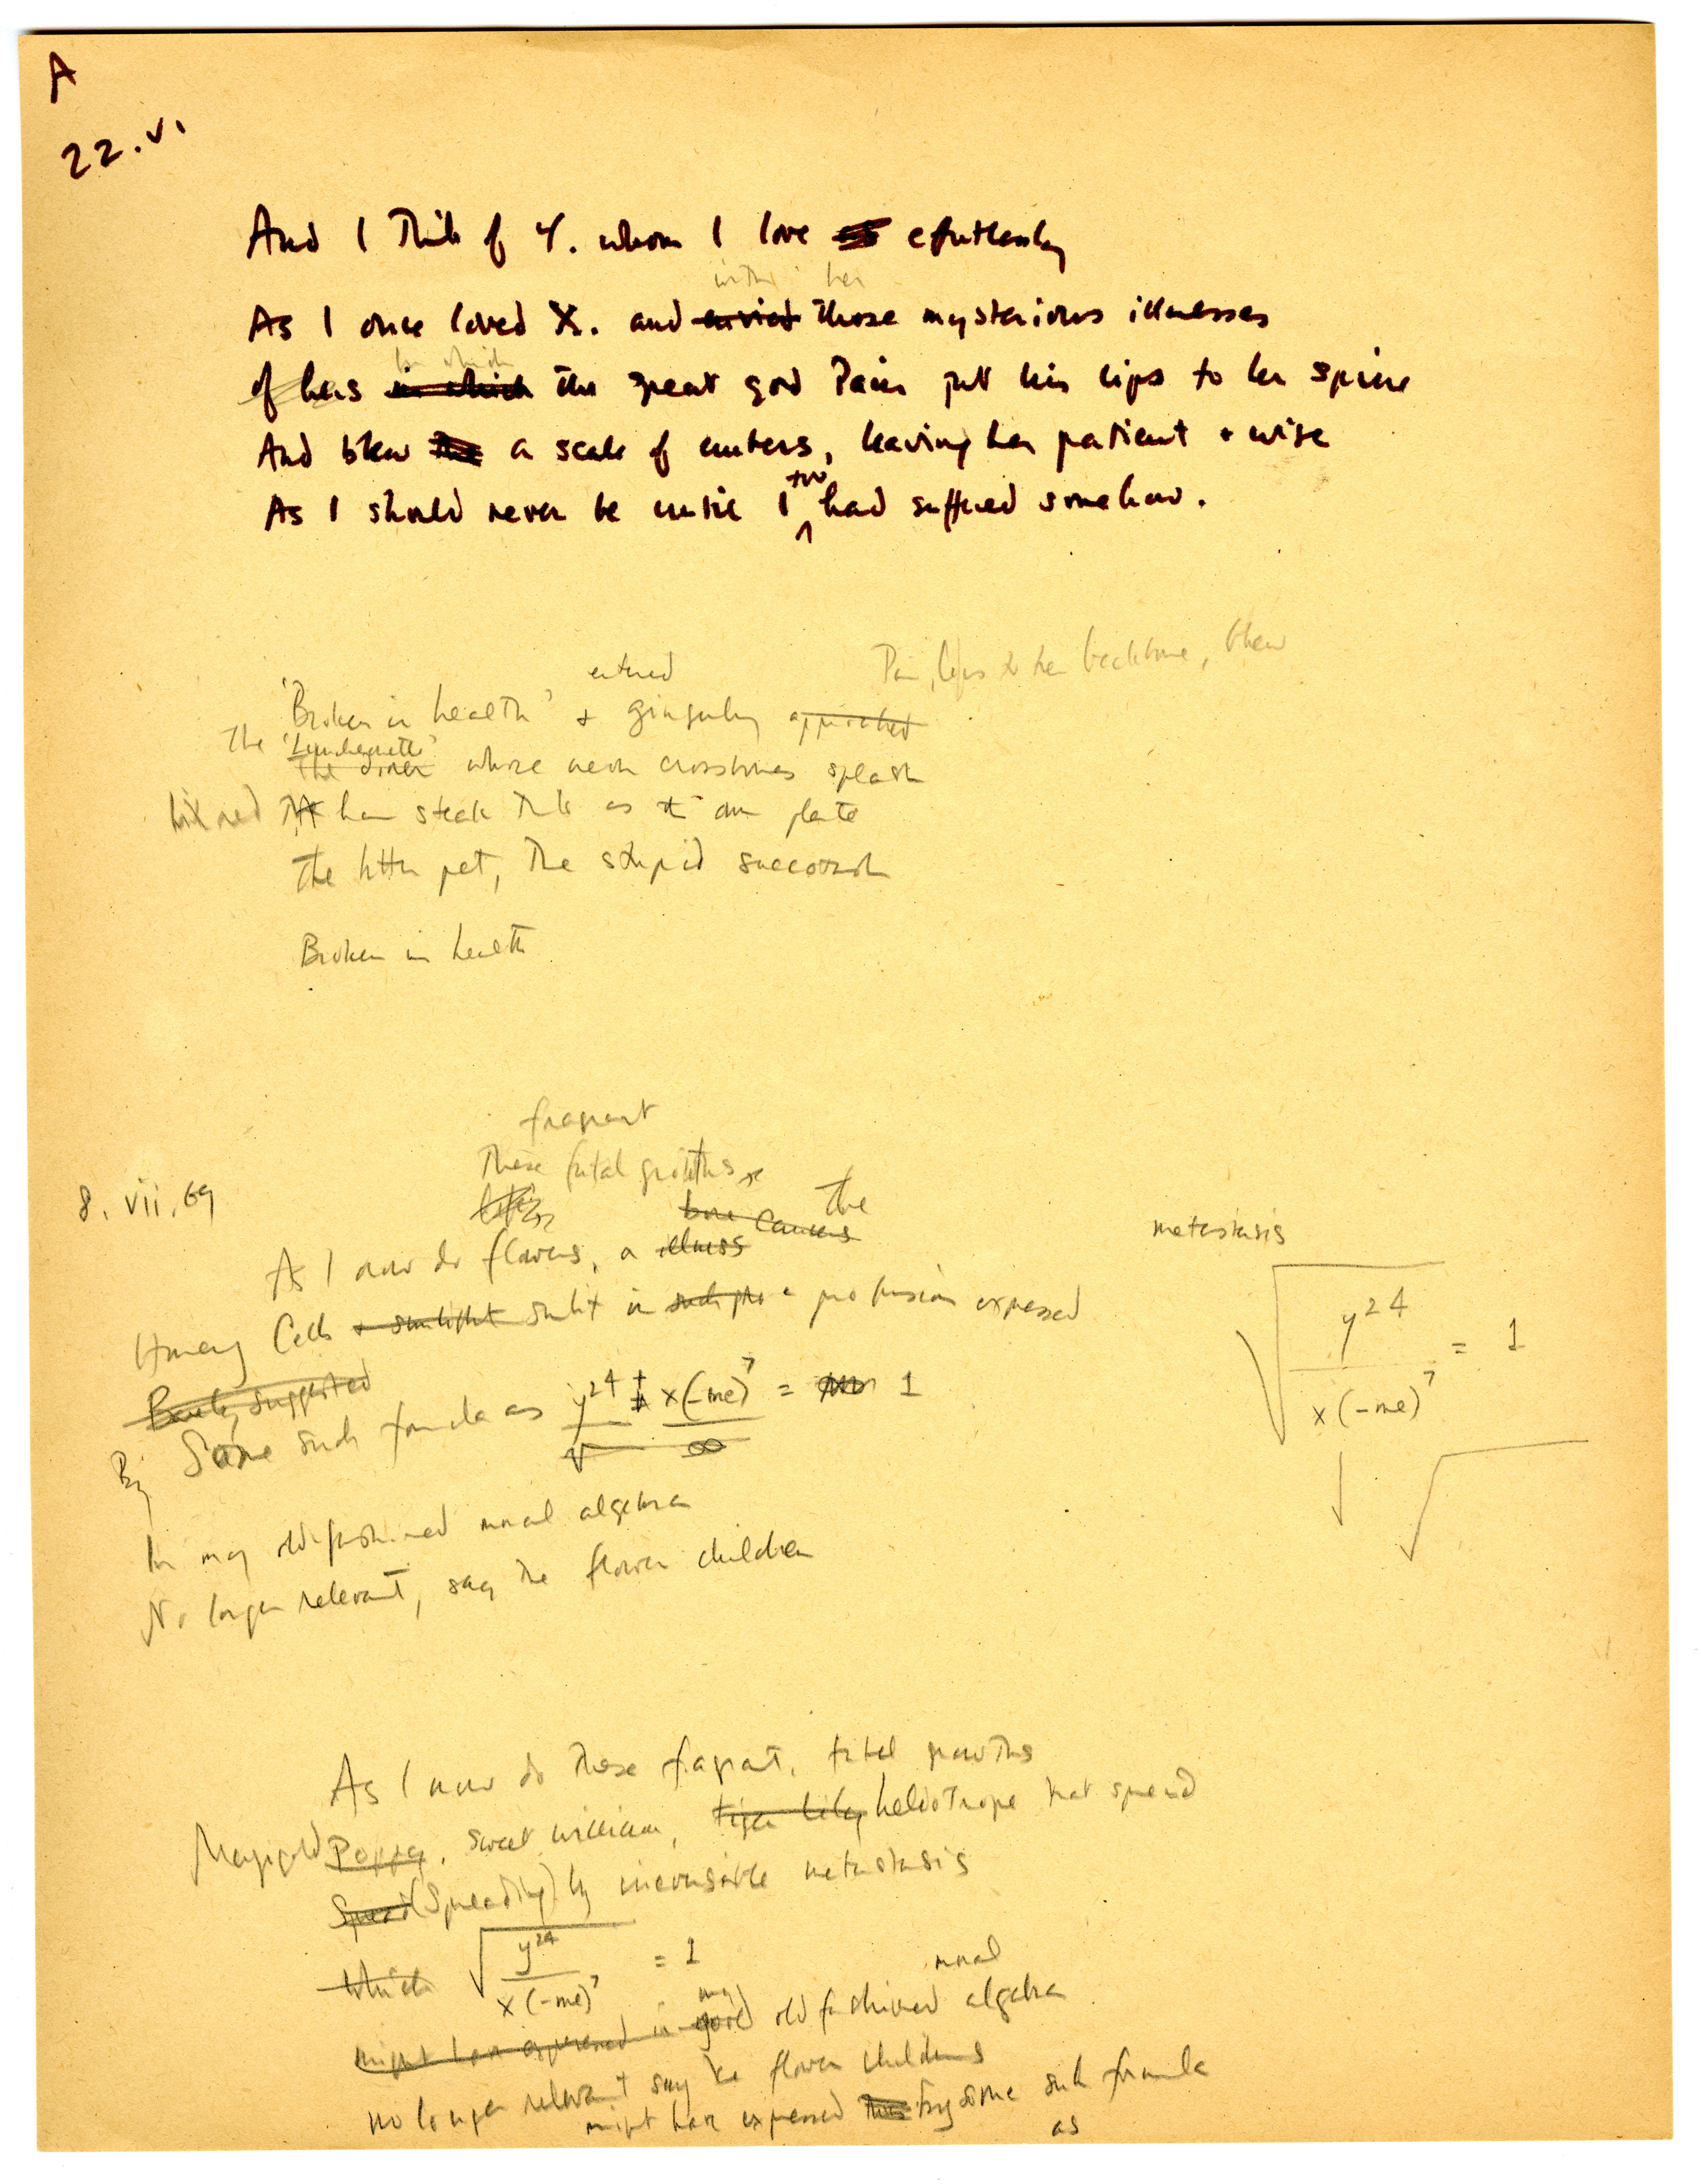 A
22.vi
And I think of Y. whom I love effortlessly
with her
As I once loved X. and envied those mysterious illnesses
in which
of hers in which the great god Pain put his lips to her spine
And blew the a scale of embers, leaving her patient + wise
too
As I should never be until I had suffered somehow.
Pain, lips to her backbone, blew
entered
'Broken in health' + gingerly approached
The 'Luncheonette'
The diner whose neon crossbones splash
red as our plate
The little pet, the stupid
Broken in health
fragrant
These fatal growths
8.vii.69
bone cancers the
As I now do flowers, a illness
Among Cells + sunlight sunlit in such pro a profusion expressed
Barely suggested
By Some such formula as y²⁴ + x(-me)⁷ = 1
√ ∞
In my old fashioned moral algebra
No longer relevant, say the flower children
metastasis
√ y²⁴ / x(-me)⁷ = 1
As I now do these fragrant, fatal growths
Marigold Poppy, sweet william, tiger lily heliotrope that spread
Spread (Spreading) by inexorable metastasis
which √ y²⁴ / x(-me)⁷ = 1
my moral
might have expressed in good old fashioned algebra
no longer relevant say the flower children
might have expressed by some such formula
as